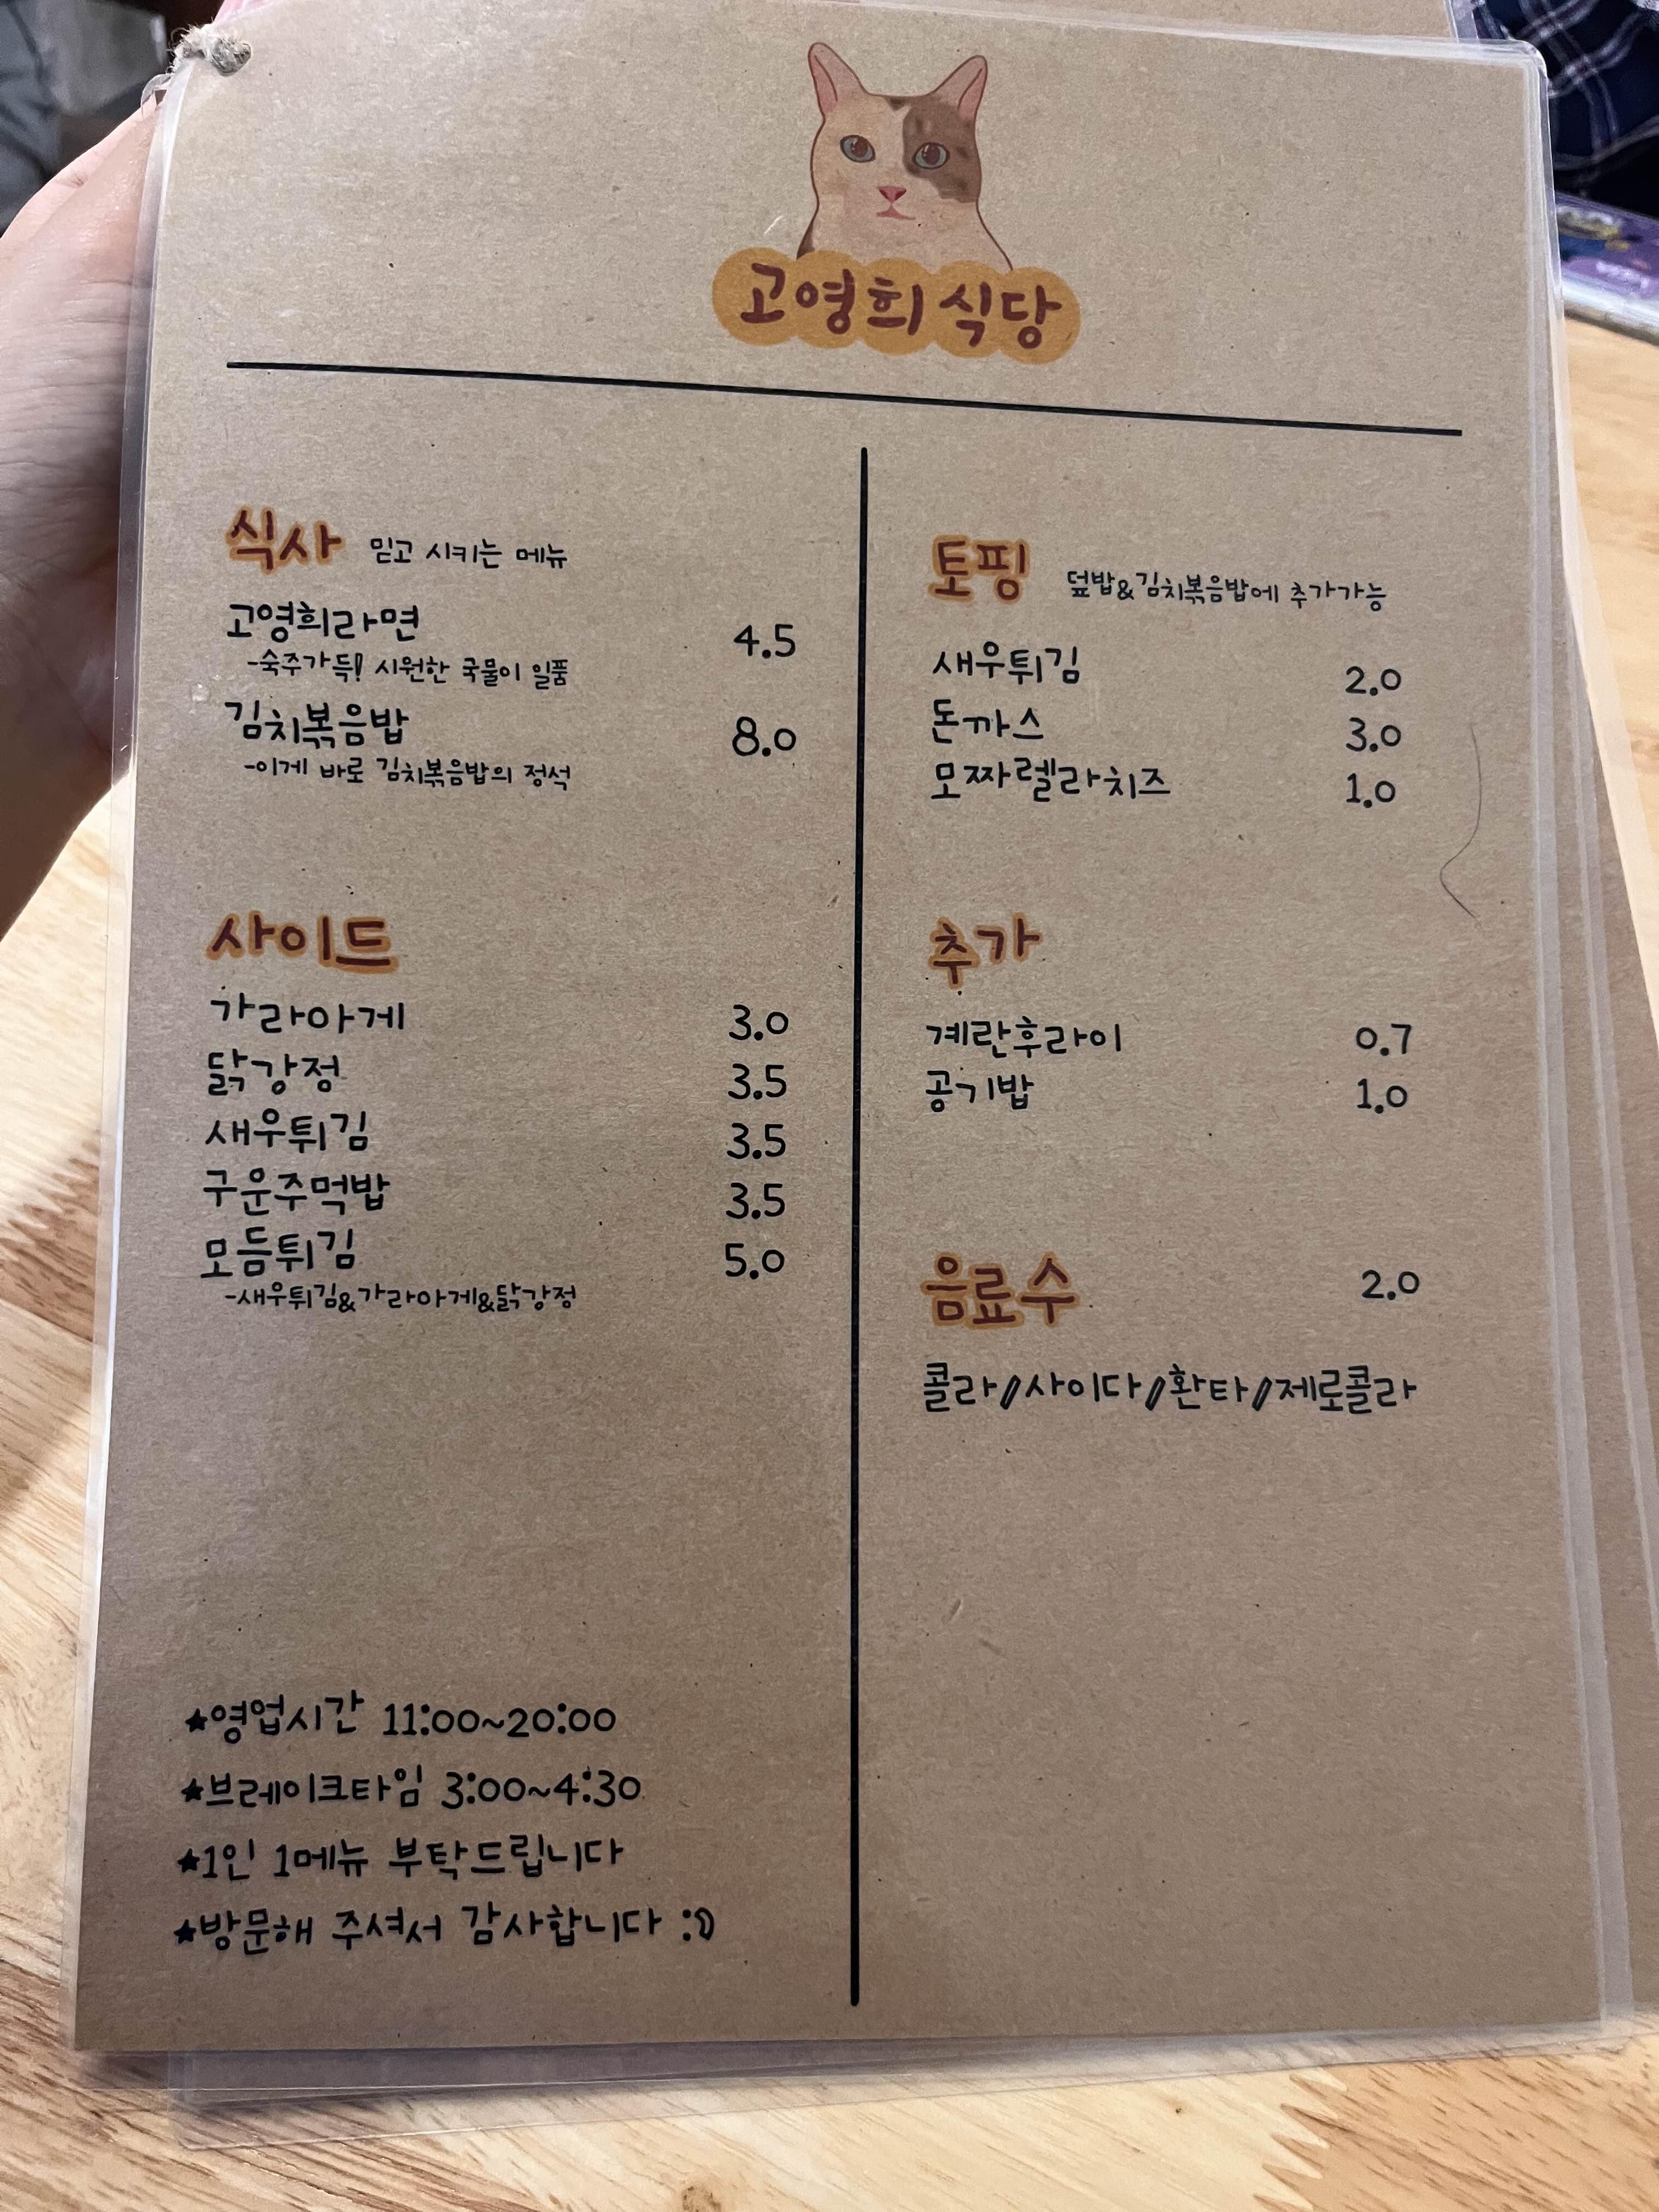 고영희 식당
식사 믿고 시키는 메뉴
고영희라면 4.5
-숙주가득! 시원한 국물이 일품
김치볶음밥 8.0
-이게 바로 김치볶음밥의 정석
사이드
가라아게 3.0
닭강정 3.5
새우튀김 3.5
구운주먹밥 3.5
모듬튀김 5.0
-새우튀김&가라아게&닭강정
★영업시간 11:00~20:00
★브레이크타임 3:00~4:30
★1인 1메뉴 부탁드립니다
★방문해 주셔서 감사합니다 :D
토핑 덮밥&김치볶음밥에 추가가능
새우튀김 2.0
돈까스 3.0
모짜렐라치즈 1.0
추가
계란후라이 0.7
공기밥 1.0
음료수 2.0
콜라/사이다/환타/제로콜라